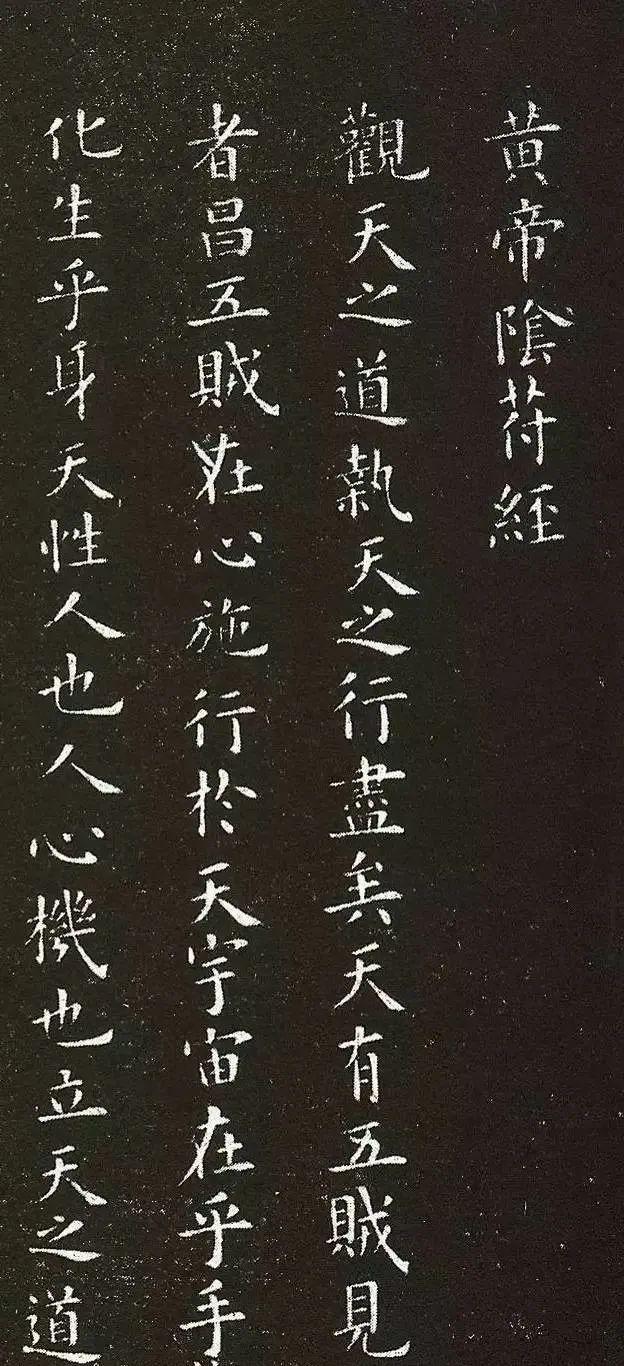 黄帝陰苻經
觀天之道執天之行盡矣天有五賊見
者昌五賊在心施行於天宇宙在乎手
化生乎身天性人也人心機也立天之道